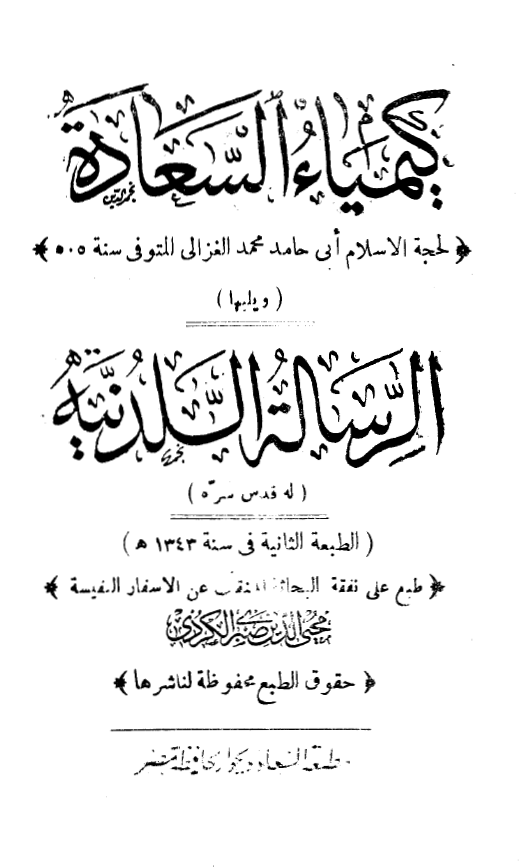 كيمياءُ السَّعادة
﴿ لحجة الاسلام أبى حامد محمد الغزالى المتوفى سنة ٥٠٥ ﴾
( ويليها )
الرِّسالة اللَّدنيَّة
( له قدس سرّه )
( الطبعة الثانية فى سنة ١٣٤٣ ھ )
﴿ طبع على نفقة البحاثة المنقب عن الاسفار النفيسة ﴾
محيى الدين صبرى الكردى
﴿ حقوق الطبع محفوظة لناشرها ﴾
مطبعة السعادة بجوار محافظة مصر